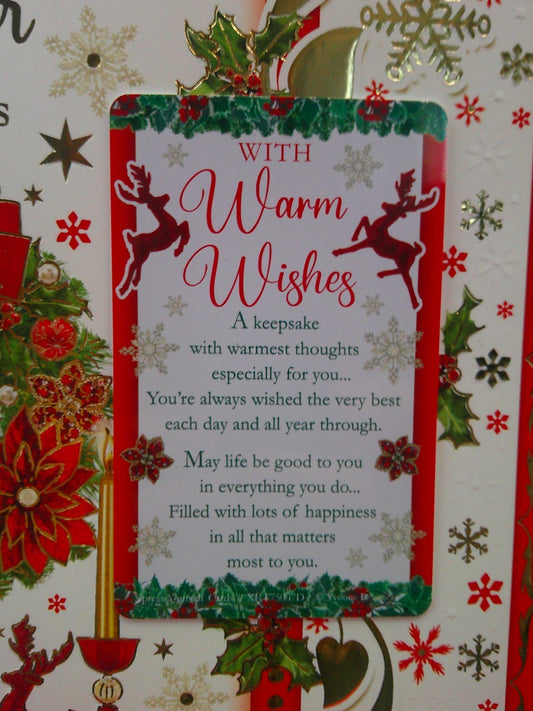 r
s
WITH
Warm
Wishes
A keepsake
with warmest thoughts
especially for you...
You're always wished the very best
each day and all year through.
May life be good to you
in everything you do...
Filled with lots of happiness
in all that matters
most to you.